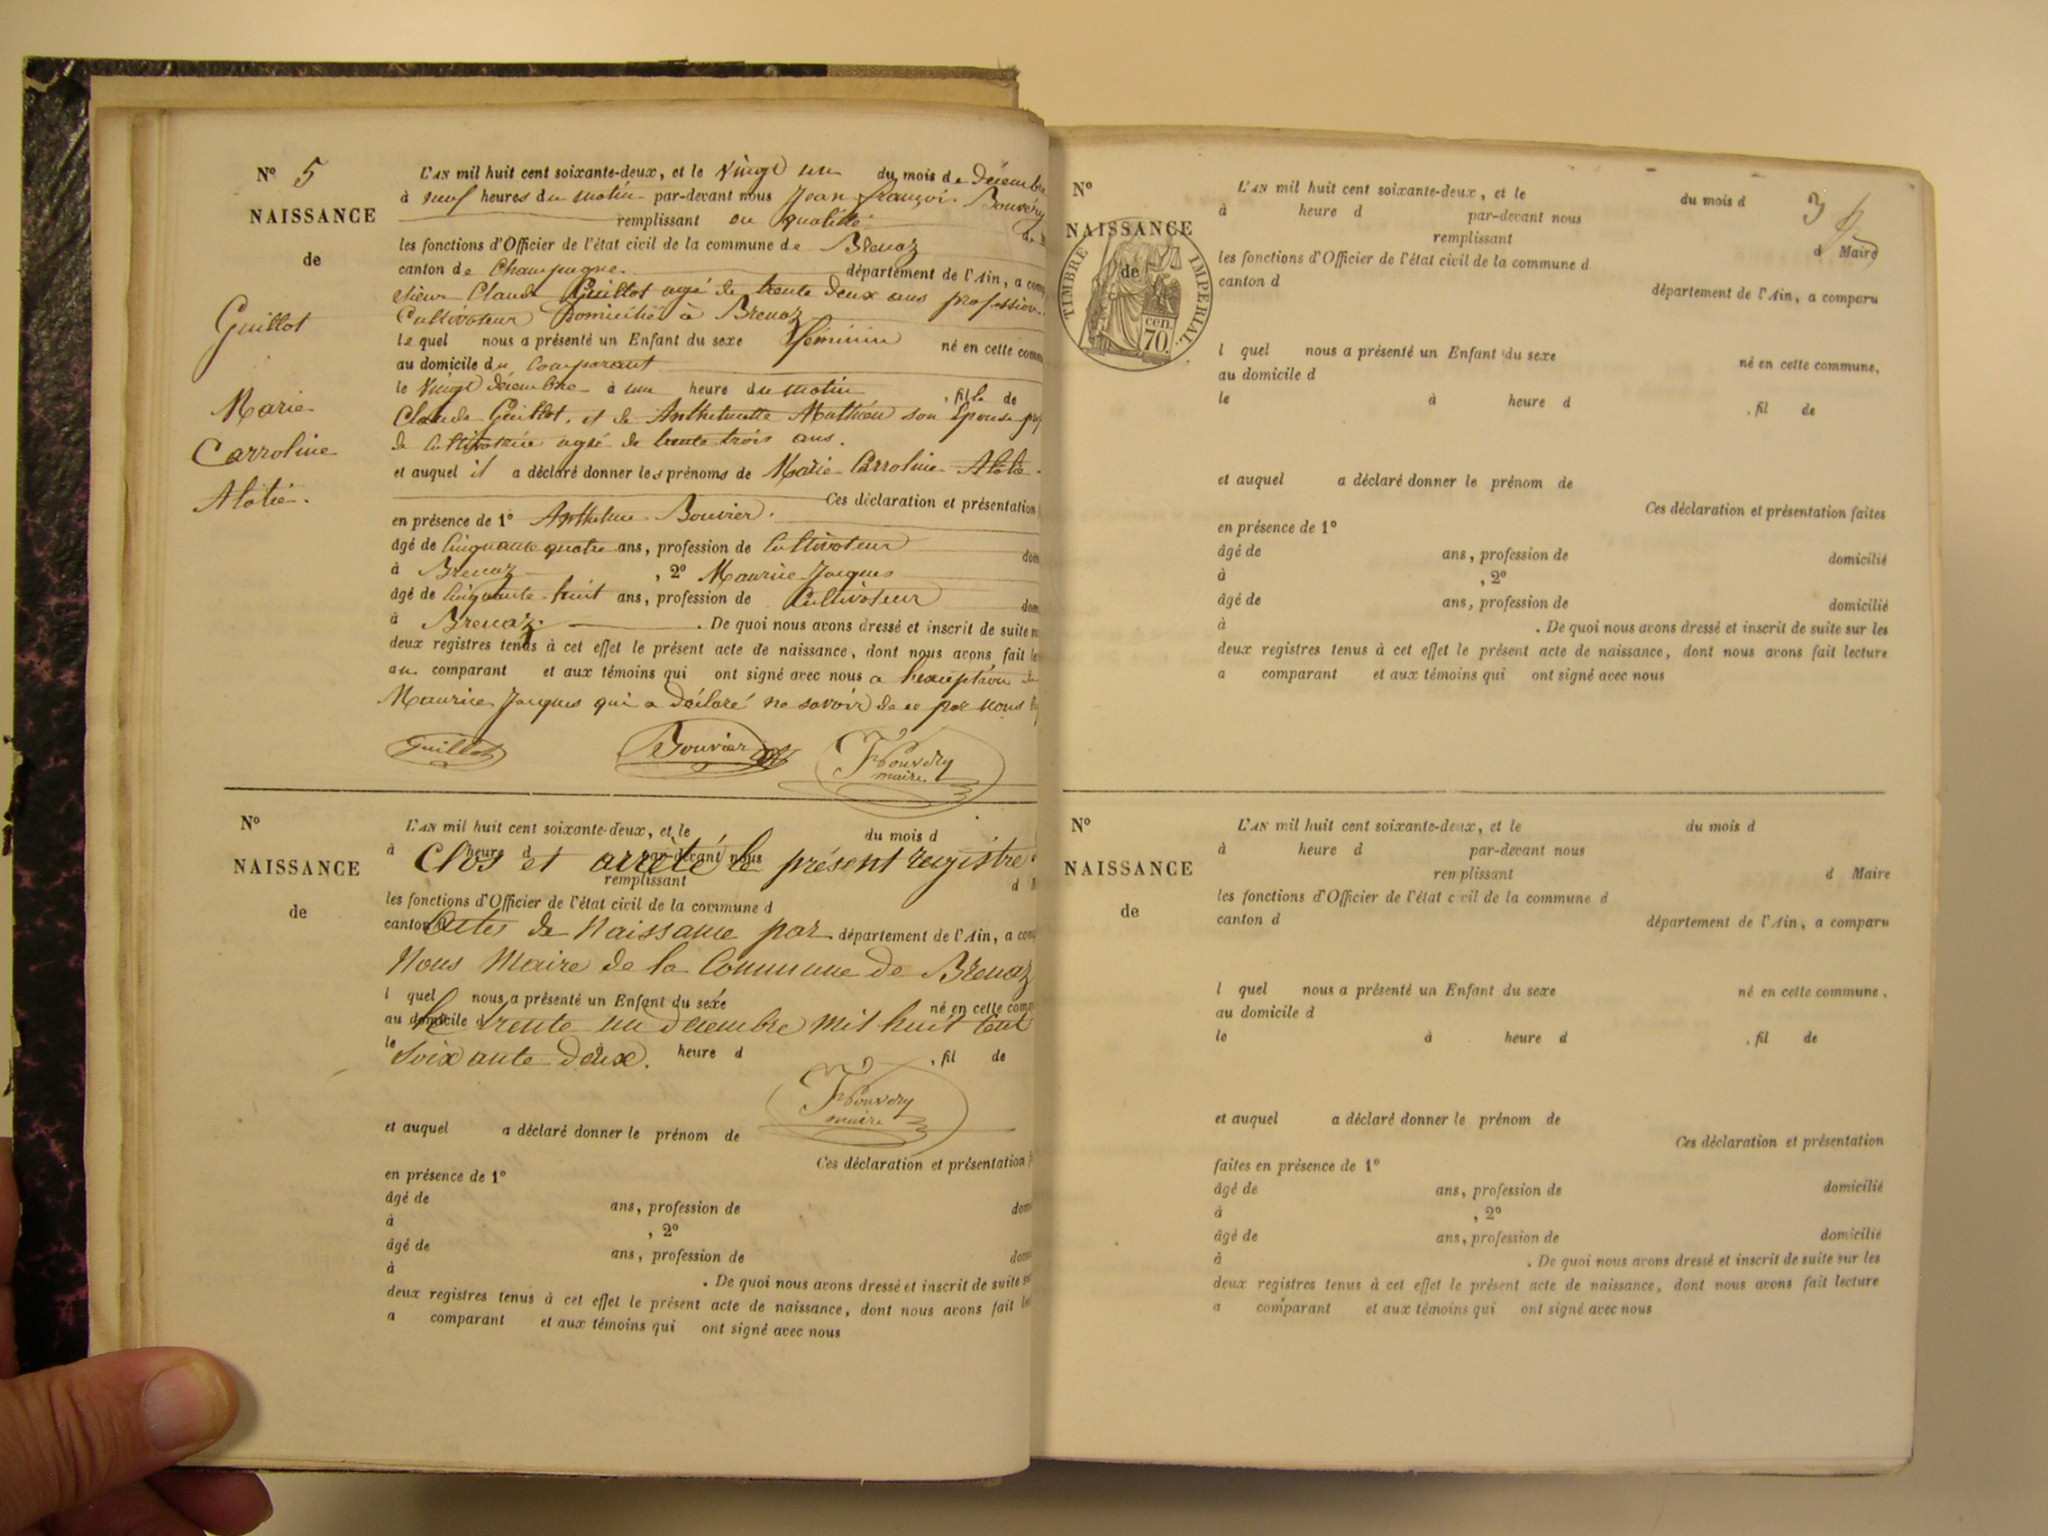 N° 5
NAISSANCE
de
Guillot
Marie
Carroline
Alotie.
L'AN mil huit cent soixante-deux, et le Vingt un du mois de Décembre
à neuf heures du matin par-devant nous Jean françois Bouvéry
remplissant en qualité de
les fonctions d'Officier de l'état civil de la commune de Brenaz
canton de Champagne département de l'Ain, a com
sieur Claude Guillot agé de trente deux ans profession
Cultivateur Domicilié à Brenaz
le quel nous a présenté un Enfant du sexe féminin né en cette comm
au domicile du Comparant
le Vingt décembre à un heure du matin , fille de
Claude Guillot, et de Anthelmette Mathieu son Epouse
de Cultivateur agé de trente trois ans.
et auquel il a déclaré donner les prénoms de Marie Carroline Alotie
Ces déclaration et présentation
en présence de 1° Anthelme Bouvier.
âgé de Cinquante quatre ans, profession de Cultivateur dom
à Brenaz , 2° Maurice Jacques
âgé de Cinquante huit ans, profession de Cultivateur dom
à Brenaz. . De quoi nous avons dressé et inscrit de suite
deux registres tenus à cet effet le présent acte de naissance, dont nous avons fait le
au comparant et aux témoins qui ont signé avec nous a l'exception de
Maurice Jacques qui a déclaré ne savoir de ce par nous
Guillot Bouvier Fr Bouvery
maire
N°
NAISSANCE
de
L'AN mil huit cent soixante-deux, et le du mois d
à heure d par-devant nous
Clos et arrêté le présent registre
remplissant d M
les fonctions d'Officier de l'état civil de la commune d
canton d département de l'Ain, a com
Actes de Naissance par
Nous Maire de la Commune de Brenaz
l quel nous a présenté un Enfant du sexe né en cette comm
au domicile d
le trente un Décembre mil huit cent
le à heure d , fil de
Soixante Deux.
Fr Bouvery
maire
et auquel a déclaré donner le prénom de
Ces déclaration et présentation
en présence de 1°
âgé de ans, profession de dom
à , 2°
âgé de ans, profession de dom
à . De quoi nous avons dressé et inscrit de suite
deux registres tenus à cet effet le présent acte de naissance, dont nous avons fait le
a comparant et aux témoins qui ont signé avec nous
N°
NAISSANCE
de
TIMBRE IMPERIAL
70 cen.
3
L'AN mil huit cent soixante-deux, et le du mois d
à heure d par-devant nous
remplissant d Maire
les fonctions d'Officier de l'état civil de la commune d
canton d département de l'Ain, a comparu
l quel nous a présenté un Enfant du sexe né en cette commune,
au domicile d
le à heure d , fil de
et auquel a déclaré donner le prénom de
Ces déclaration et présentation faites
en présence de 1°
âgé de ans, profession de domicilié
à , 2°
âgé de ans, profession de domicilié
à . De quoi nous avons dressé et inscrit de suite sur les
deux registres tenus à cet effet le présent acte de naissance, dont nous avons fait lecture
a comparant et aux témoins qui ont signé avec nous
N°
NAISSANCE
de
L'AN mil huit cent soixante-deux, et le du mois d
à heure d par-devant nous
remplissant d Maire
les fonctions d'Officier de l'état civil de la commune d
canton d département de l'Ain, a comparu
l quel nous a présenté un Enfant du sexe né en cette commune,
au domicile d
le à heure d , fil de
et auquel a déclaré donner le prénom de
Ces déclaration et présentation
faites en présence de 1°
âgé de ans, profession de domicilié
à , 2°
âgé de ans, profession de domicilié
à . De quoi nous avons dressé et inscrit de suite sur les
deux registres tenus à cet effet le présent acte de naissance, dont nous avons fait lecture
a comparant et aux témoins qui ont signé avec nous